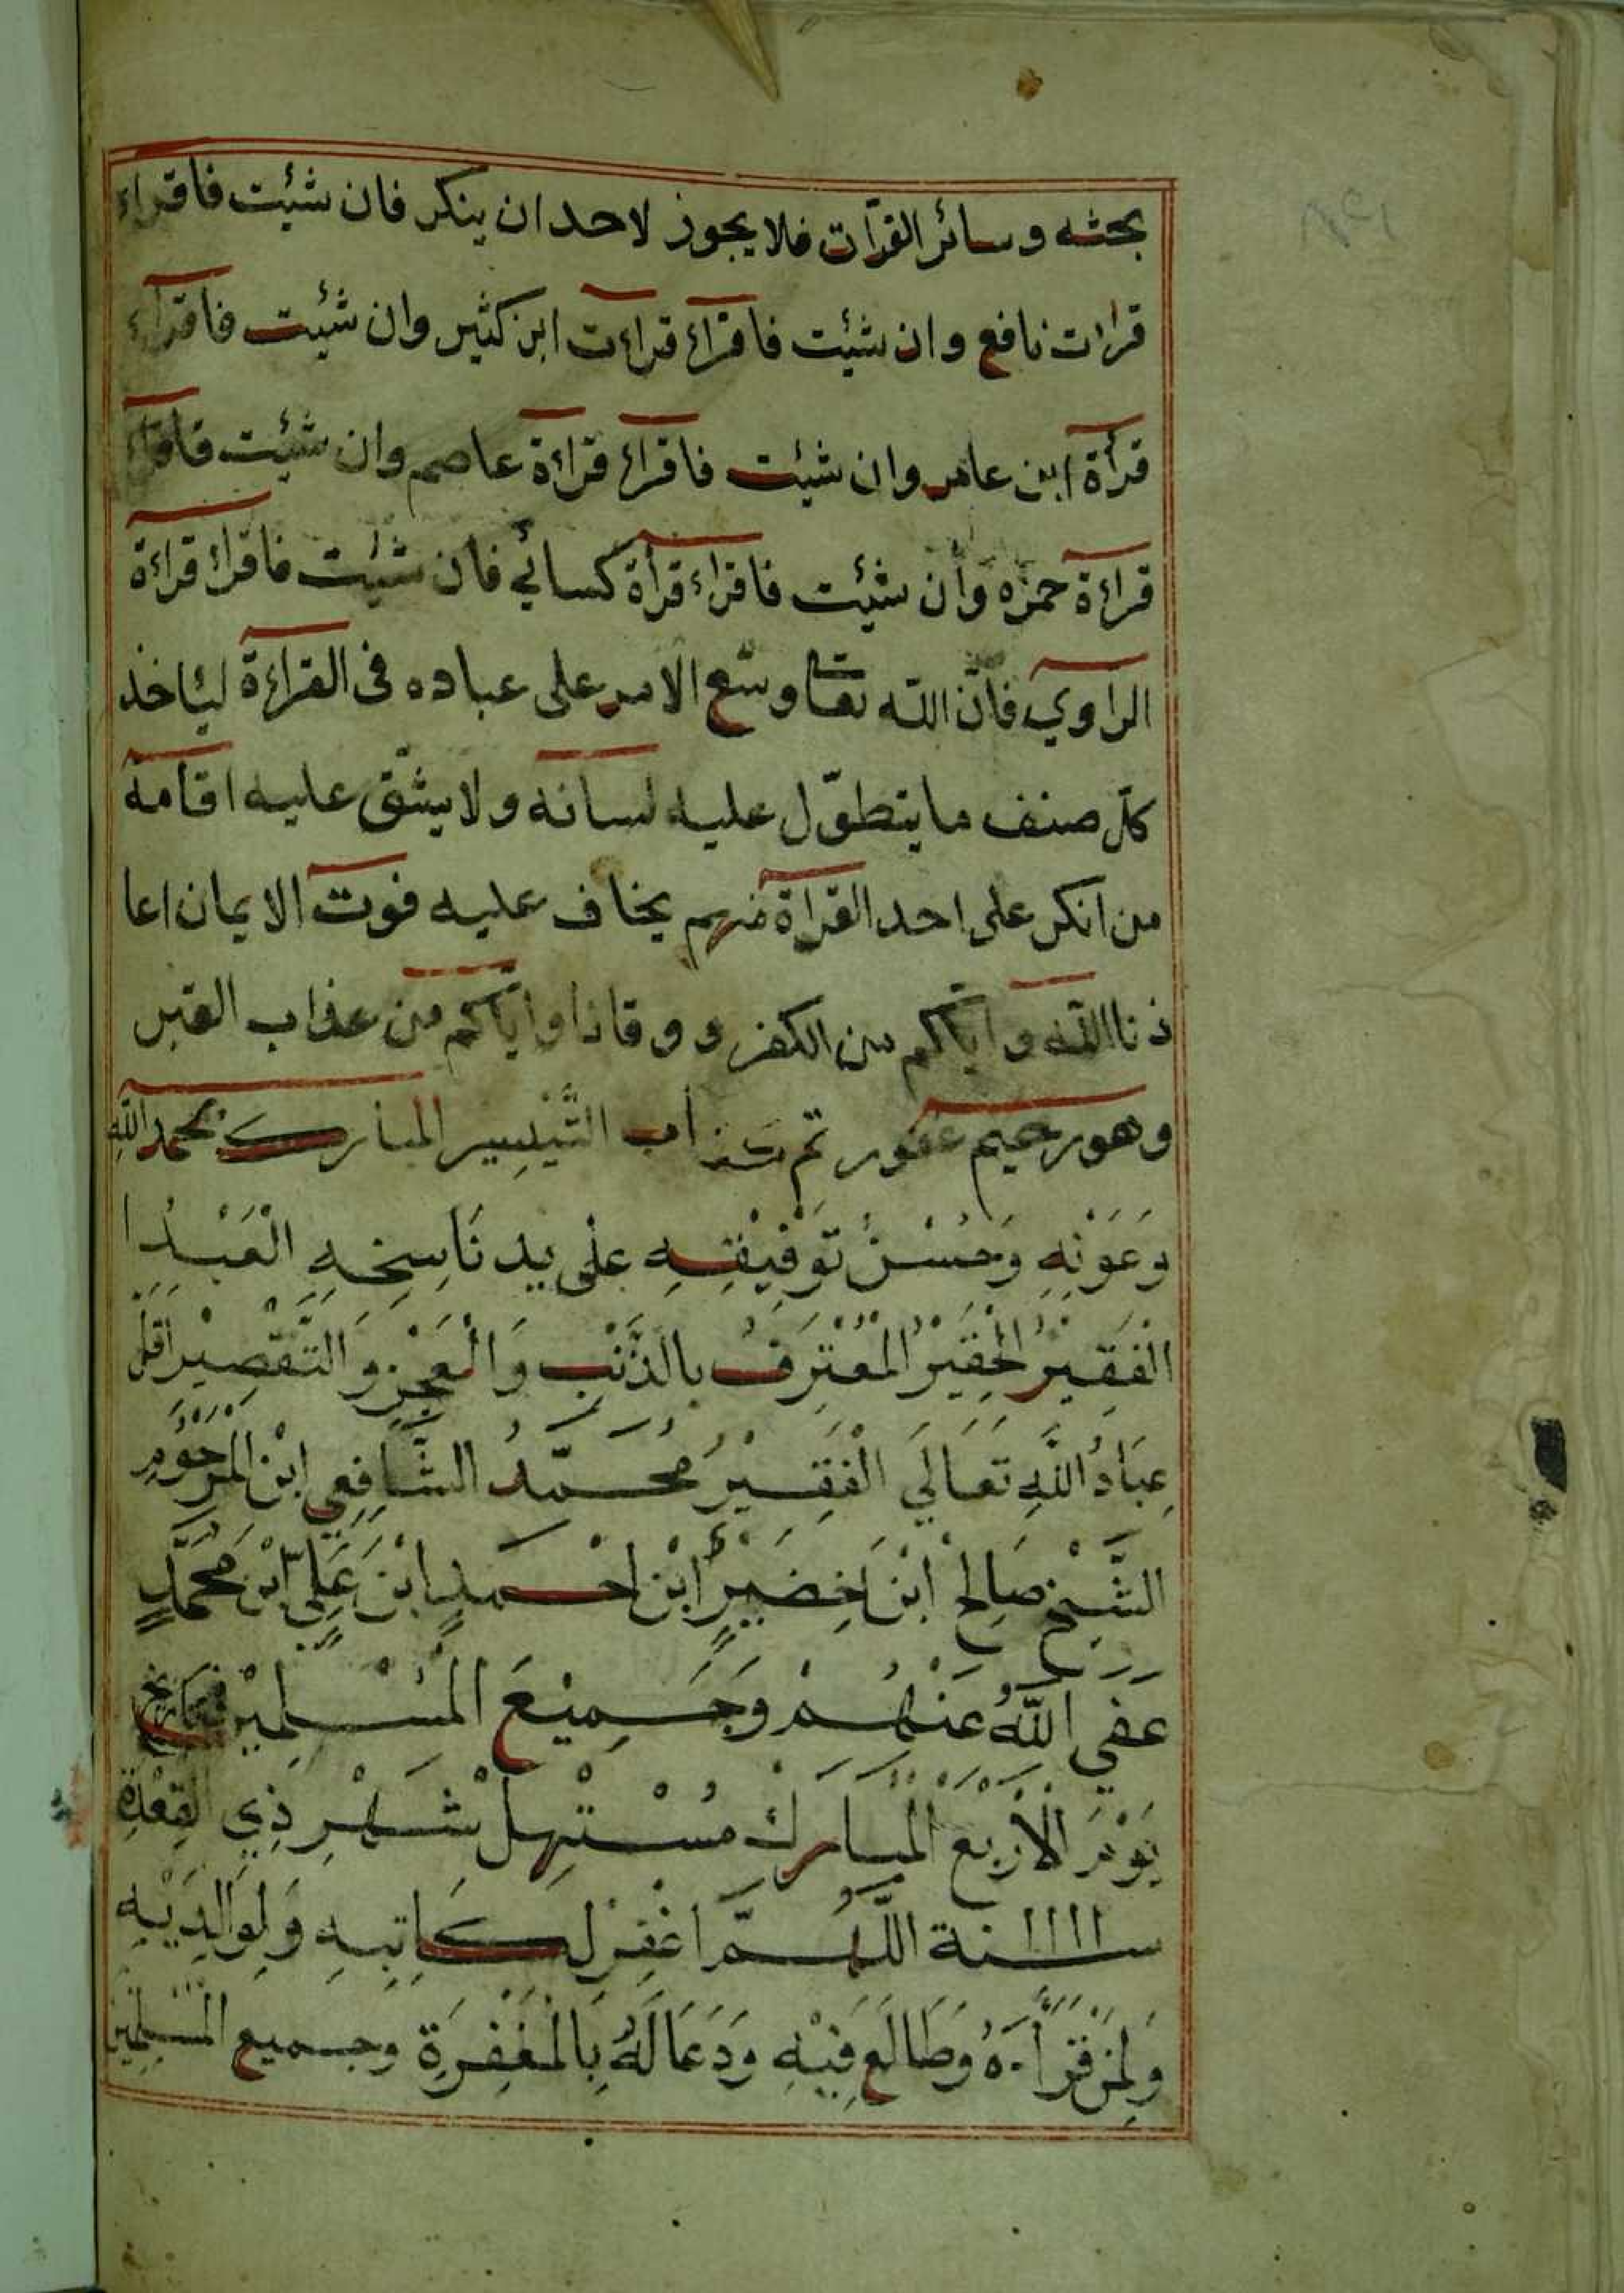 بحثه وسائر القرآت فلا يجوز لاحد ان ينكر فان شئت فاقراء
قرات نافع وان شئت فاقرآء قراءت ابن كثير وان شئت فاقرآء
قرأة ابن عامر وان شئت فاقراء قراءة عاصم وان شئت فاقراء
قراءة حمزه وان شئت فاقراء قرأة كسائي فان شئت فاقراء قراءة
الراوي فانّ اللّه تعا وسّع الامر على عباده فى القراءة ليئاخذ
كلّ صنف ما يتطوّل عليه لسانه ولا يشقّ عليه اقامة
من انكر على احد القراة منهم يخاف عليه فوت الايمان اعا
ذنا اللّه وايّاكم من الكفر ووقانا وايّاكم من عذاب القبر
وهو رحيم غفور تم التَّيْسِير المبارك بحمد اللّهِ
وَعَوْنِهِ وَحُسْنُ تَوْفِيْقِهِ عَلٰى يد نَاسِخِهِ الْعَبْدُ ا
الْفَقِيْرُ الْحَقِيْرُ الْمُعْتَرِفُ بالذَّنْبِ وَالْعَجْزِ وَالتَّقْصِيْر اَقَلّ
عِبَادُ اللَّهِ تَعَالَي الْفَقِيْرُ مُحَمَّدُ الشَّافِعِي ابْن الْمَرْحُوْمِ
الشَّيْخ صَالِحْ ابْن خِضَيْرٍ ابْن اَحْمَدٍ ابْن عَلِيّ ابْن مُحَمَّدٍ
عَفَي اللَّهُ عَنْهُمْ وَجَمِيْعَ الْمُسْلِمِيْن في تاريخ
يَوْمَ الْاَرْبع الْمُبَارَك مُسْتَهِلّ شَهْرِ ذِي القِعْدَةِ
سنة ١١١١ اللَّهُمَّ اغْفِرْ لِكَاتِبِهِ وَلِوَالِدَيْهِ
وَلِمَنْ قَرَأَءَهُ وَطَالَعَ فِيْهِ وَدَعَا لَهُ بِالْمَغْفِرَةِ وجميع الْمُسْلِمِيْن